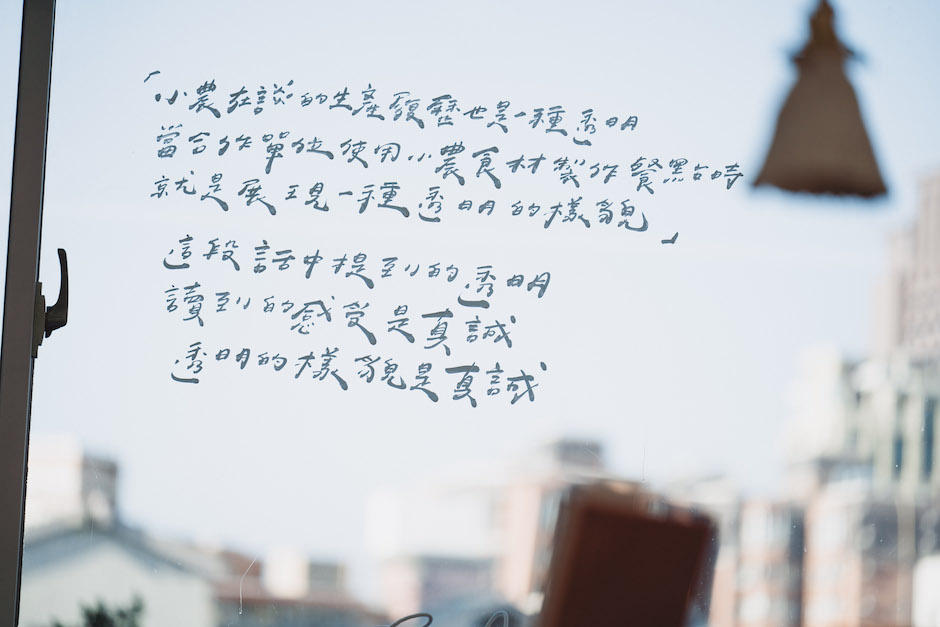 「小農在談的生產履歷也是一種透明
當合作單位使用小農食材製作餐點時
就是展現一種透明的樣貌」
這段話中提到的透明
讀到的感受是真誠
透明的樣貌是真誠